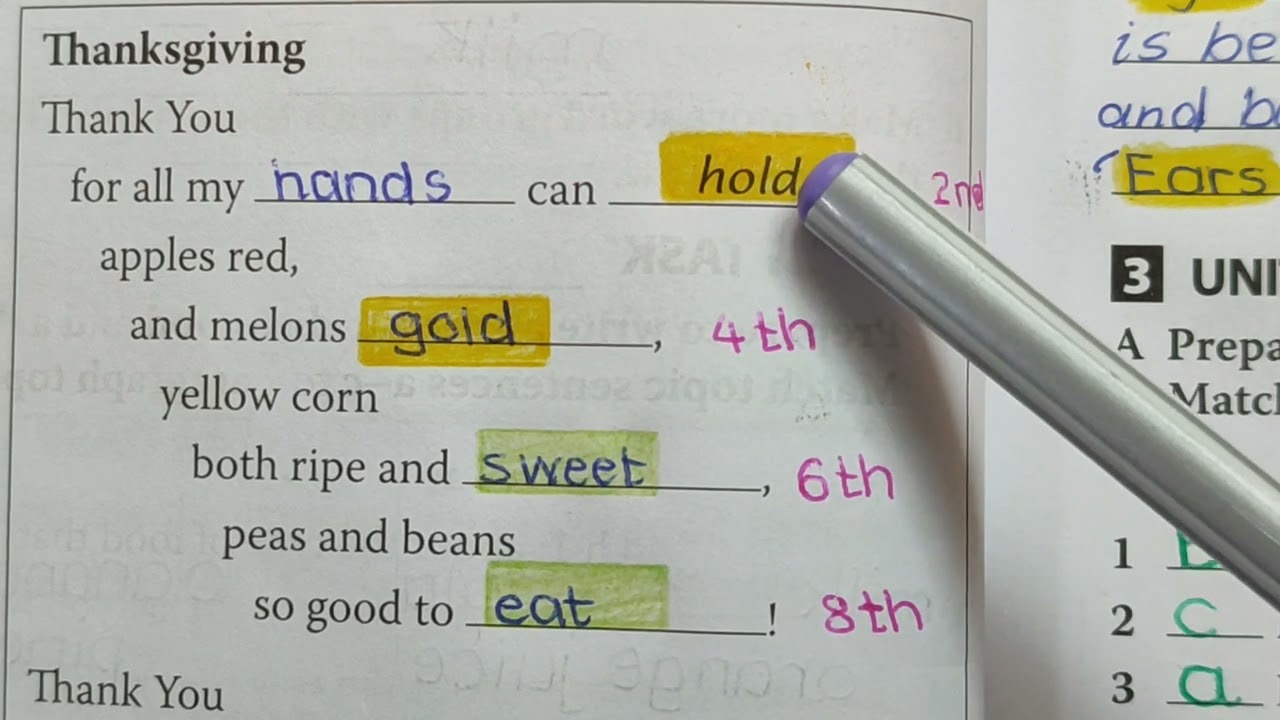 Thanksgiving
Thank You
for all my hands can hold 2nd
apples red,
and melons gold, 4th
yellow corn
both ripe and sweet, 6th
peas and beans
so good to eat! 8th
Thank You
is be
and b
Ears
3 UNI
A Prepa
Matc
1
2 c
3 a